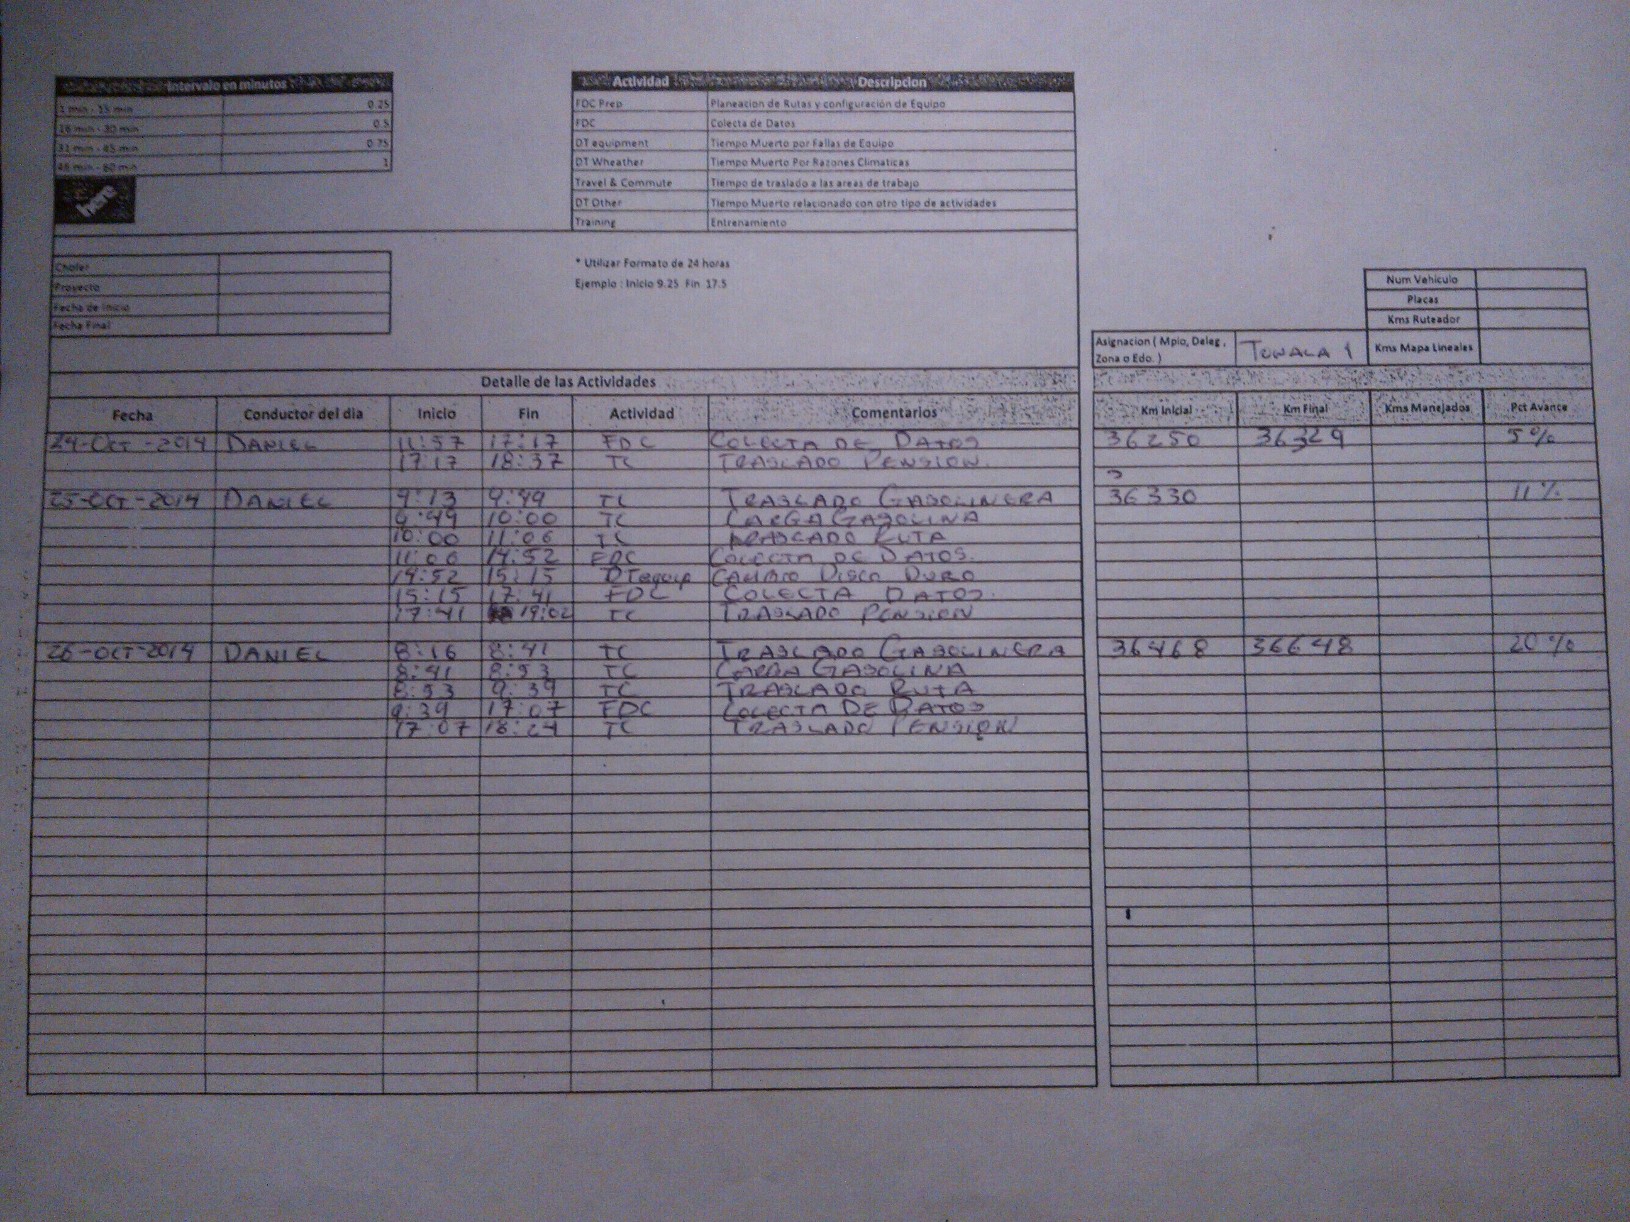 Intervalo en minutos
1 min - 15 min 0.25
16 min - 30 min 0.5
31 min - 45 min 0.75
46 min - 60 min 1
here
Actividad Descripcion
FDC Prep Planeacion de Rutas y configuración de Equipo
FDC Colecta de Datos
DT equipment Tiempo Muerto por Fallas de Equipo
DT Wheather Tiempo Muerto Por Razones Climaticas
Travel & Commute Tiempo de traslado a las areas de trabajo
DT Other Tiempo Muerto relacionado con otro tipo de actividades
Training Entrenamiento
Chofer
Proyecto
Fecha de Inicio
Fecha Final
* Utilizar Formato de 24 horas
Ejemplo : Inicio 9.25 Fin 17.5
Num Vehiculo
Placas
Kms Ruteador
Asignacion ( Mpio, Deleg , Zona o Edo. ) TONALA 1 Kms Mapa Lineales
Detalle de las Actividades
Fecha Conductor del dia Inicio Fin Actividad Comentarios Km Inicial Km Final Kms Manejados Pct Avance
24-OCT-2014 DANIEL 11:57 17:17 FDC COLECTA DE DATOS 36250 36329 5%
17:17 18:37 TC TRASLADO PENSION.
25-OCT-2014 DANIEL 9:13 9:49 TC TRASLADO GASOLINERA 36330 11%
9:49 10:00 TC CARGA GASOLINA
10:00 11:06 TC TRASLADO RUTA
11:06 14:52 FDC COLECTA DE DATOS.
14:52 15:15 DTequip CAMBIO DISCO DURO
15:15 17:41 FDC COLECTA DATOS.
17:41 19:02 TC TRASLADO PENSION
26-OCT-2014 DANIEL 8:16 8:41 TC TRASLADO GASOLINERA 36468 36648 20%
8:41 8:53 TC CARGA GASOLINA
8:53 9:39 TC TRASLADO RUTA
9:39 17:07 FDC COLECTA DE DATOS
17:07 18:24 TC TRASLADO PENSION